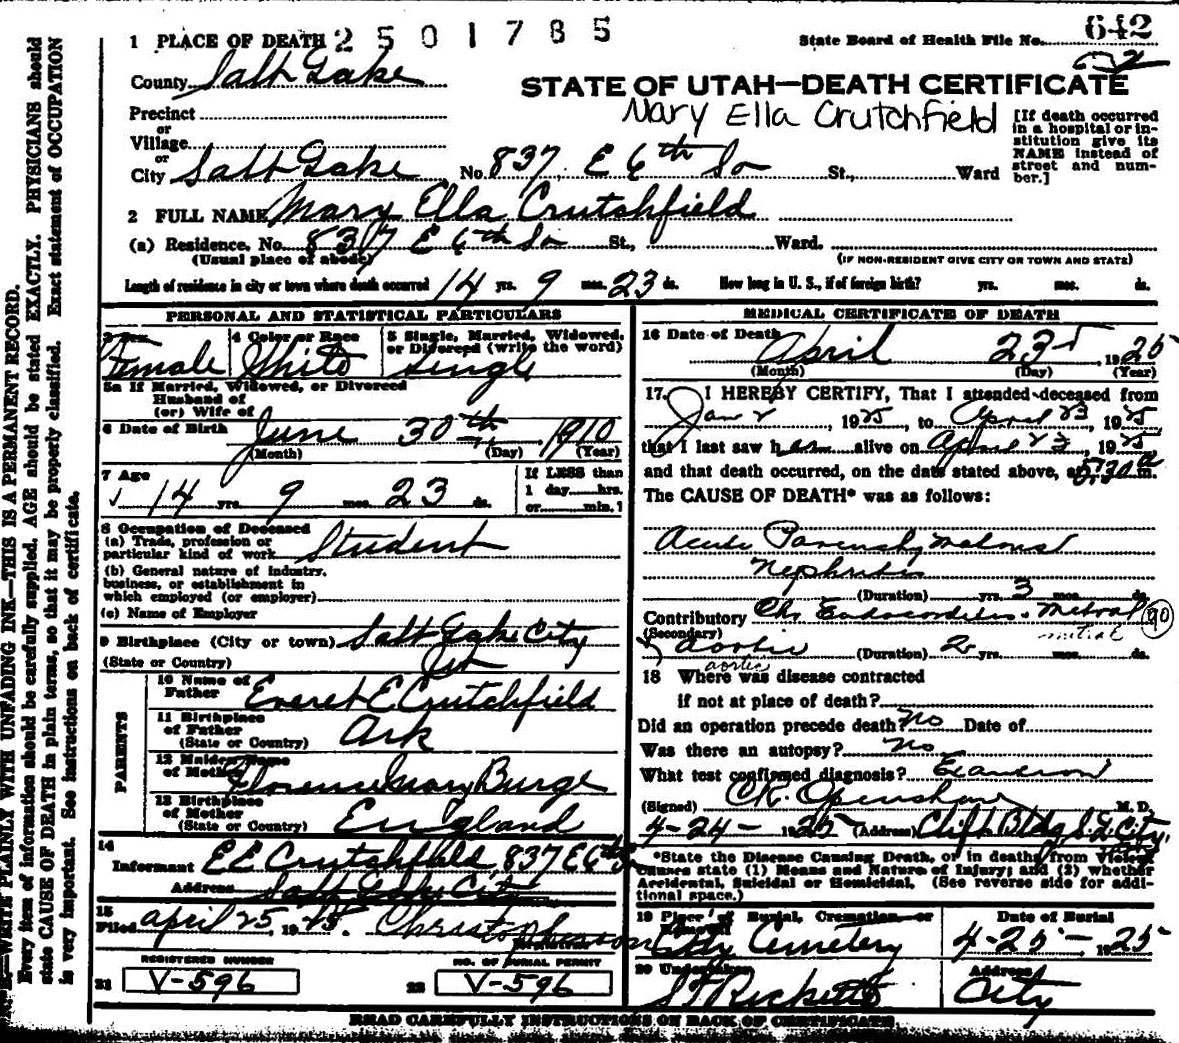 1 PLACE OF DEATH 2501785
State Board of Health File No. 642
632
County Salt Lake
STATE OF UTAH—DEATH CERTIFICATE
Mary Ella Crutchfield
Precinct
or
Village
or
City Salt Lake No. 837 E 6th So St., Ward
[If death occurred
in a hospital or in-
stitution give its
NAME instead of
street and num-
ber.]
2 FULL NAME Mary Ella Crutchfield
(a) Residence, No. 837 E 6th So St., Ward.
(Usual place of abode)
(IF NON-RESIDENT GIVE CITY OR TOWN AND STATE)
Length of residence in city or town where death occurred 14 yrs. 9 mos. 23 ds. How long in U. S., if of foreign birth? yrs. mos. ds.
PERSONAL AND STATISTICAL PARTICULARS
3 Female
4 Color or Race White
5 Single, Married, Widowed,
or Divorced (write the word)
Single
5a If Married, Widowed, or Divorced
Husband of
(or) Wife of
6 Date of Birth June 30th 1910
(Month) (Day) (Year)
7 Age
14 yrs. 9 mos. 23 ds.
If LESS than
1 day hrs.
or min.
8 Occupation of Deceased
(a) Trade, profession or
particular kind of work Student
(b) General nature of industry,
business, or establishment in
which employed (or employer)
(c) Name of Employer
9 Birthplace (City or town) Salt Lake City
(State or Country) Ut
PARENTS
10 Name of
Father Everet E Crutchfield
11 Birthplace
of Father
(State or Country) Ark
12 Maiden Name
of Mother Florence Mary Burge
13 Birthplace
of Mother
(State or Country) England
14
Informant E E Crutchfield 837 E 6th S
Address Salt Lake City
15
Filed April 25, 1925.
REGISTERED NUMBER
21 V-596
NO. OF BURIAL PERMIT
22 V-596
MEDICAL CERTIFICATE OF DEATH
16 Date of Death April 23 1925
(Month) (Day) (Year)
17. I HEREBY CERTIFY, That I attended deceased from
Jan 2 1925, to April 23, 1925
that I last saw her alive on April 23, 1925
and that death occurred, on the date stated above, at 5:30 a m.
The CAUSE OF DEATH* was as follows:
Acute Parenchymatous
Nephritis
(Duration) yrs. 3 mos. ds.
Contributory Chr Endocarditis - Metral 90
(Secondary) mitral
aortic (Duration) 2 yrs. mos. ds.
aortic
18 Where was disease contracted
if not at place of death?
Did an operation precede death? No Date of
Was there an autopsy? No
What test confirmed diagnosis?
(Signed) C R Openshaw M. D.
4-24- 1925 (Address) Clift Bldg S. L. City.
*State the Disease Causing Death, or in deaths from Violent
Causes state (1) Means and Nature of Injury; and (2) whether
Accidental, Suicidal or Homicidal. (See reverse side for addi-
tional space.)
19 Place of Burial, Cremation, or
Removal
City Cemetery
Date of Burial
4-25-, 1925
20 Undertaker
S T Ricketts
Address
City
READ CAREFULLY INSTRUCTIONS ON BACK OF CERTIFICATE
WRITE PLAINLY WITH UNFADING INK—THIS IS A PERMANENT RECORD.
Every item of information should be carefully supplied. AGE should be stated EXACTLY. PHYSICIANS should
state CAUSE OF DEATH in plain terms, so that it may be properly classified. Exact statement of OCCUPATION
is very important. See instructions on back of certificate.